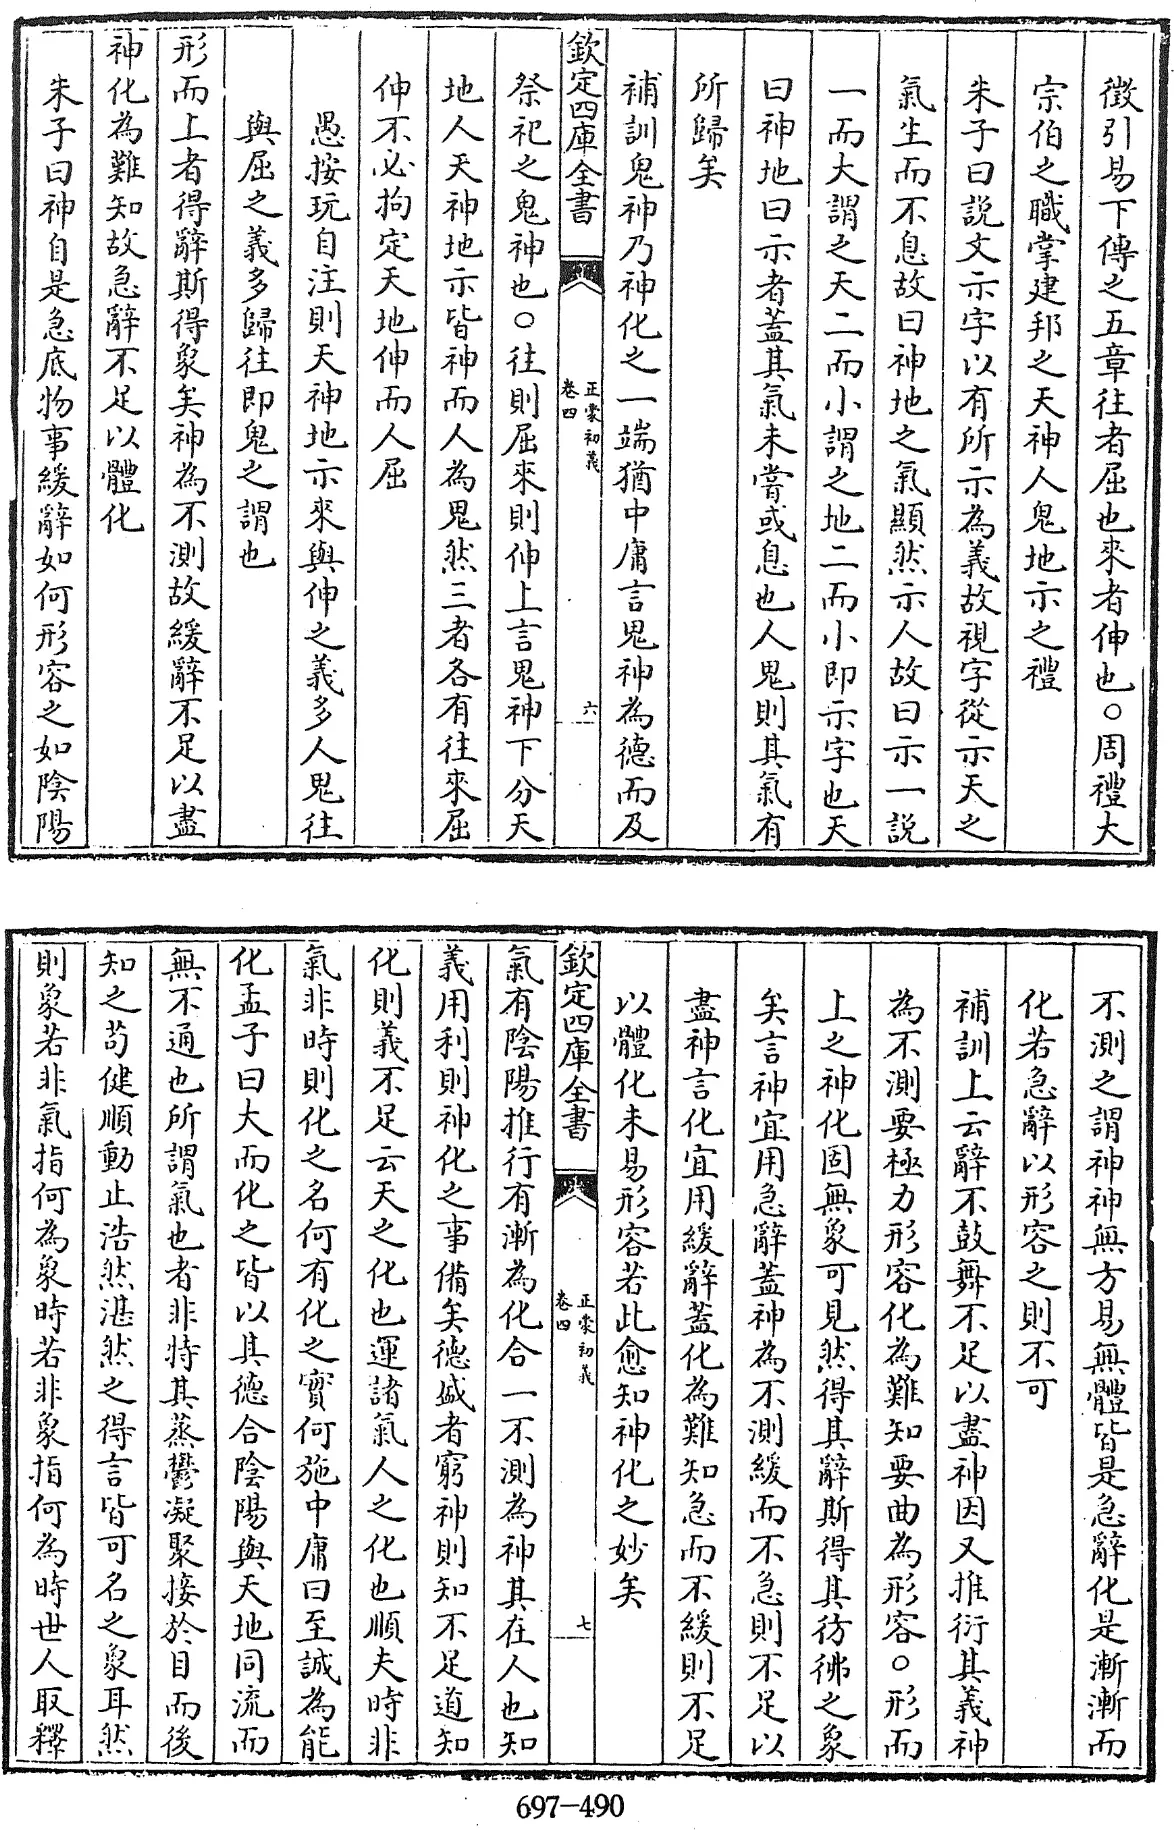 徴引易下傳之五章往者屈也來者伸也○周禮大
宗伯之職掌建邦之天神人鬼地示之禮
朱子曰説文示字以有所示為義故視字從示天之
氣生而不息故曰神地之氣顯然示人故曰示一説
一而大謂之天二而小謂之地二而小即示字也天
曰神地曰示者葢其氣未嘗或息也人鬼則其氣有
所歸矣
補訓鬼神乃神化之一端猶中庸言鬼神為德而及
欽定四庫全書
正蒙初義
卷四
六
祭祀之鬼神也○往則屈來則伸上言鬼神下分天
地人天神地示皆神而人為鬼然三者各有往來屈
伸不必拘定天地伸而人屈
愚按玩自注則天神地示來與伸之義多人鬼往
與屈之義多歸往即鬼之謂也
形而上者得辭斯得象矣神為不測故緩辭不足以盡
神化為難知故急辭不足以體化
朱子曰神自是急底物事緩辭如何形容之如陰陽
不測之謂神神無方易無體皆是急辭化是漸漸而
化若急辭以形容之則不可
補訓上云辭不鼓舞不足以盡神因又推衍其義神
為不測要極力形容化為難知要曲為形容○形而
上之神化固無象可見然得其辭斯得其彷彿之象
矣言神宜用急辭葢神為不測緩而不急則不足以
盡神言化宜用緩辭葢化為難知急而不緩則不足
以體化未易形容若此愈知神化之妙矣
欽定四庫全書
正蒙初義
卷四
七
氣有陰陽推行有漸為化合一不測為神其在人也知
義用利則神化之事備矣德盛者窮神則知不足道知
化則義不足云天之化也運諸氣人之化也順夫時非
氣非時則化之名何有化之實何施中庸曰至誠為能
化孟子曰大而化之皆以其德合陰陽與天地同流而
無不通也所謂氣也者非特其蒸鬱凝聚接於目而後
知之苟健順動止浩然湛然之得言皆可名之象耳然
則象若非氣指何為象時若非象指何為時世人取釋
697-490